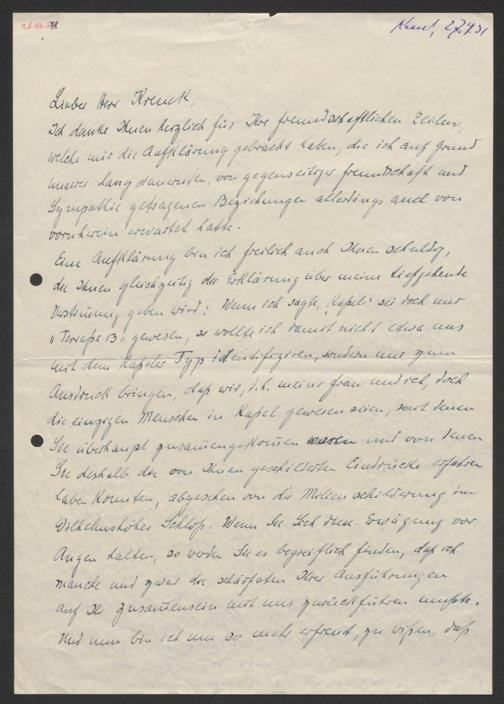 Kassel, 27.4.31
Lieber Herr Krenek,
Ich danke Ihnen herzlich für Ihre freundschaftlichen Zeilen,
welche mir die Aufklärung gebracht haben, die ich auf Grund
unserer langdauernden, von gegenseitiger Freundschaft und
Sympathie getragenen Beziehungen allerdings auch von
vornherein erwartet hatte.
Eine Aufklärung bin ich freilich auch Ihnen schuldig,
die Ihnen gleichzeitig die Erklärung über meine tiefgehende
Verstimung geben wird: Wenn ich sagte, "Kaßel" sei doch nur
"Terraße 13" gewesen, so wollte ich damit nicht etwa uns
mit dem Kaßeler Typ identifizieren, sondern nur zum
Ausdruck bringen, daß wir, d.h. meine Frau und ich, doch
die einzigen Menschen in Kaßel gewesen seien, mit denen
Sie überhaupt zusamengekomen waren und von denen
Sie deshalb die von Ihnen geschilderten Eindrücke erfahren
haben konnten, abgesehen von der Milieuschilderung im
Wilhelmshöher Schloß. Wenn Sie sich diese Erwägung vor
Augen halten, so werden Sie es begreiflich finden, daß ich
manche und zwar die schärfsten Ihrer Ausführungen
auf Ihr Zusamensein mit uns zurückführen mußte.
Und nun bin ich um so mehr erfreut, zu wißen, daß